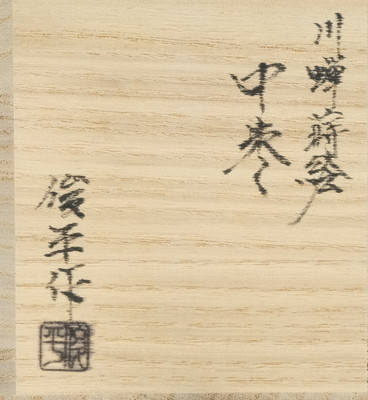 川蝉蒔絵
中棗
俊平作